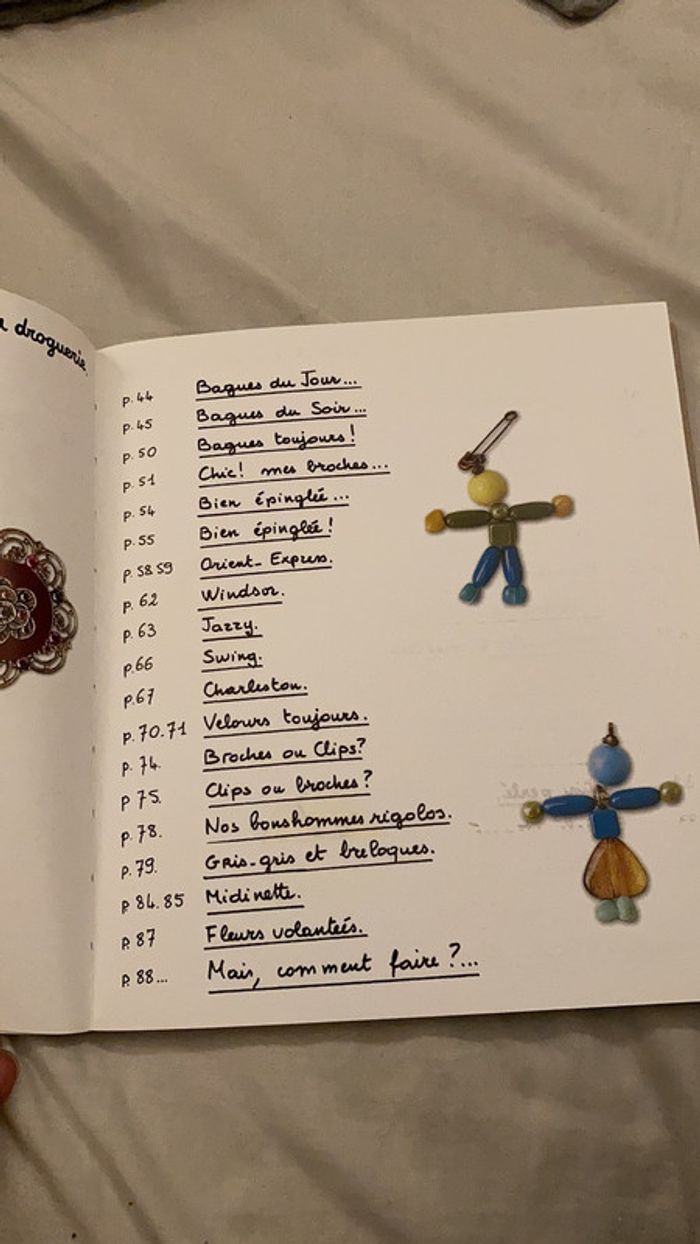 droguerie
p.44 Bagues du Jour...
p.45 Bagues du Soir...
p.50 Bagues toujours!
p.51 Chic! mes broches...
p.54 Bien épinglée...
p.55 Bien épinglée!
p.58 59 Orient-Express.
p.62 Windsor.
p.63 Jazzy.
p.66 Swing.
p.67 Charleston.
p.70.71 Velours toujours.
p.74. Broches ou Clips?
p 75. Clips ou broches?
p.78. Nos bonshommes rigolos.
p.79. Gris-gris et breloques.
p 84.85 Midinette.
p.87 Fleurs volantées.
p.88... Mais, comment faire?...